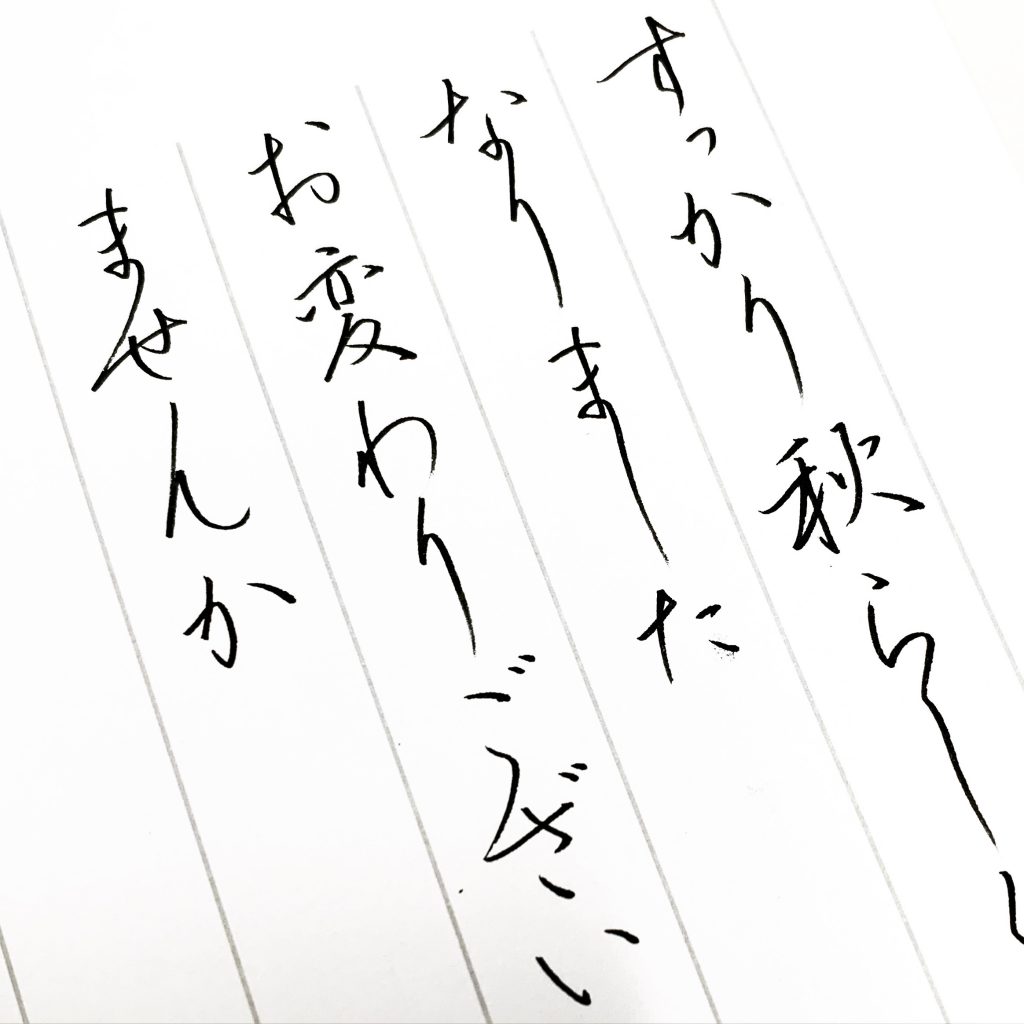 すっかり秋らしく
なりました
お変わりござい
ませんか